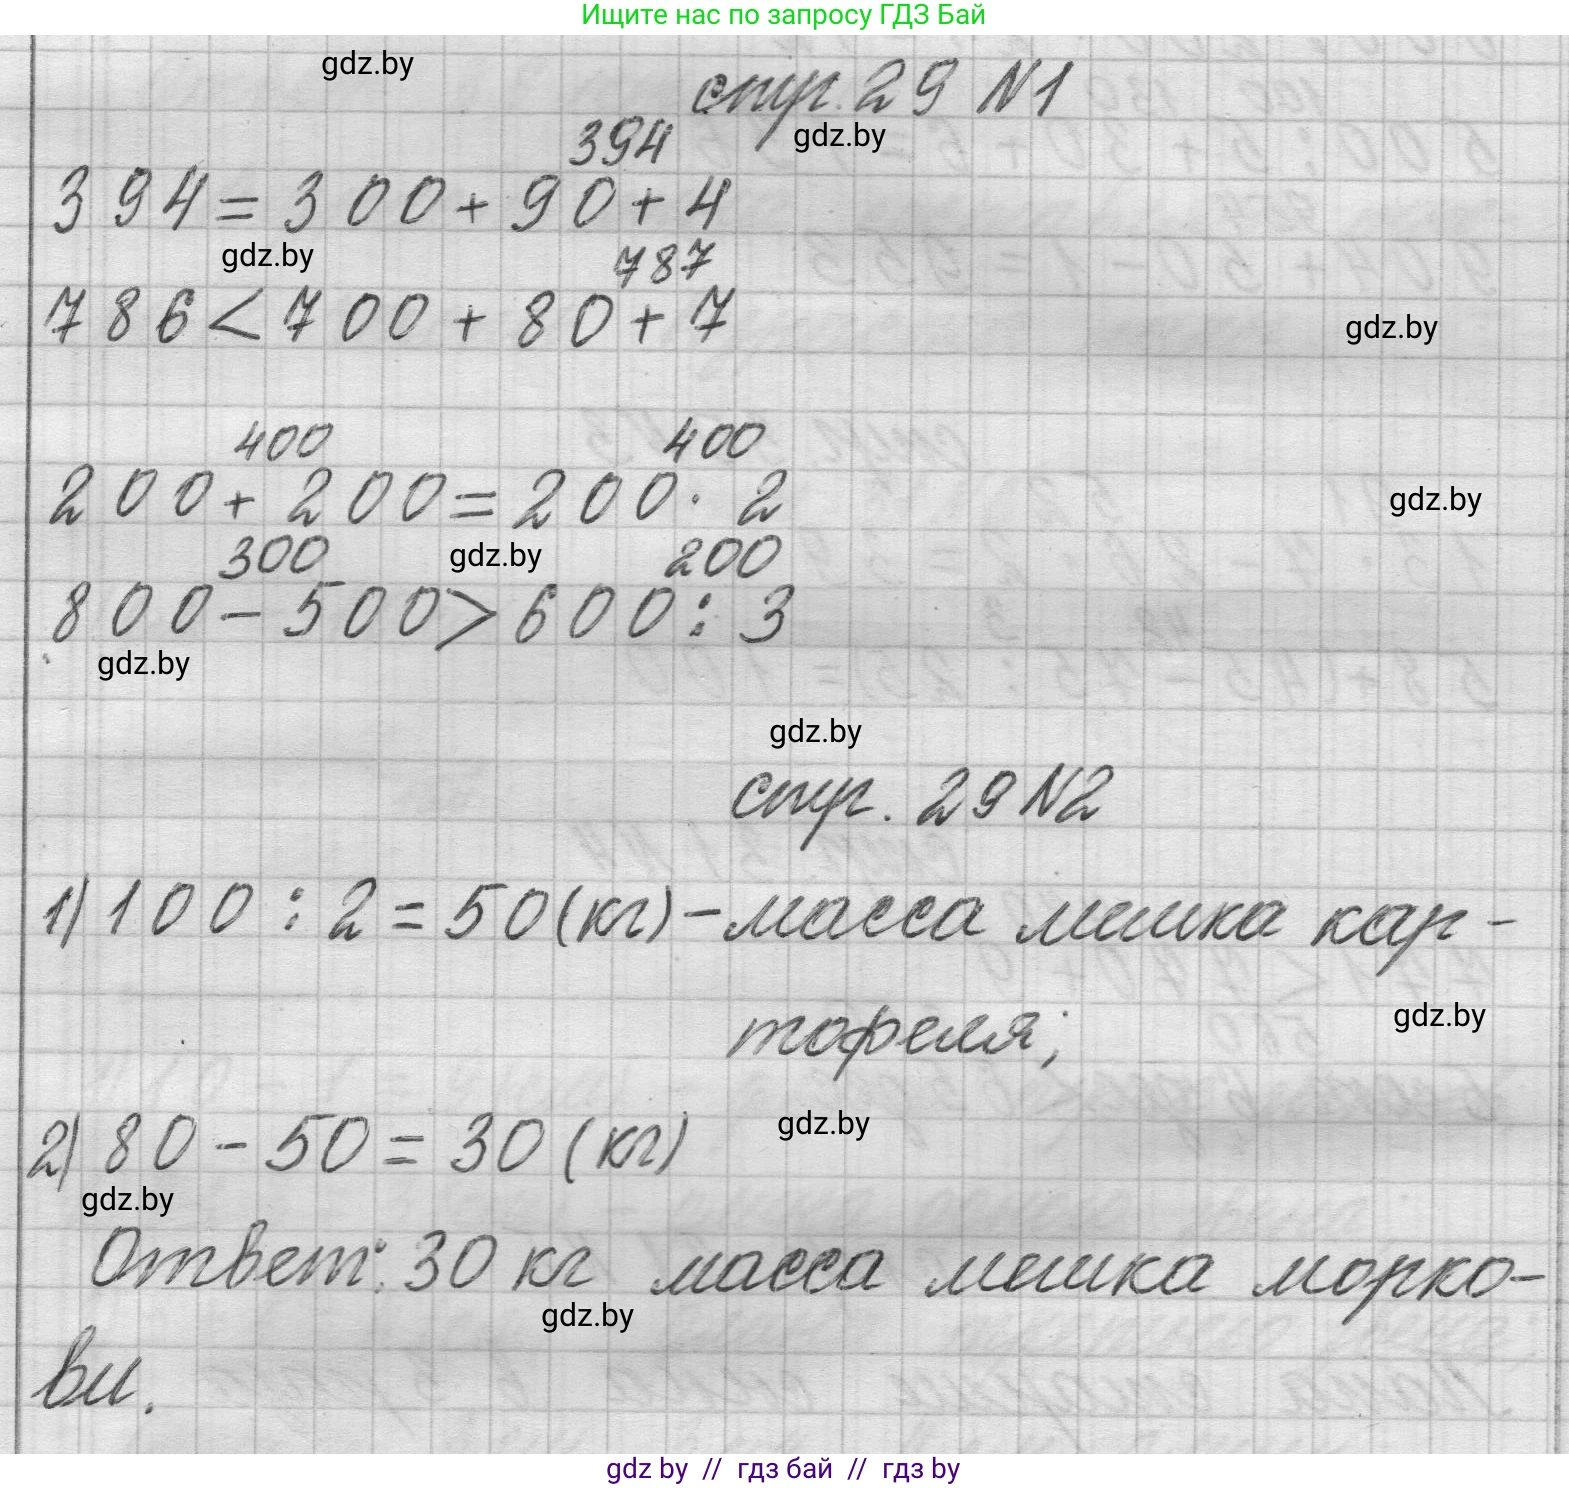 Ищите нас по запросу ГДЗ Бай
gdz.by
стр. 29 N1
gdz.by
394
394=300+90+4
gdz.by
787
786<700+80+7
gdz.by
400 400
200+200=200·2
gdz.by
300 200
gdz.by
800-500>600:3
gdz.by
gdz.by
стр. 29 N2
1) 100:2=50(кг)-масса мешка кар-
gdz.by
тофеля;
2) 80-50=30(кг)
gdz.by
gdz.by
Ответ: 30 кг масса мешка морко-
gdz.by
ви.
gdz by // гдз бай // гдз by